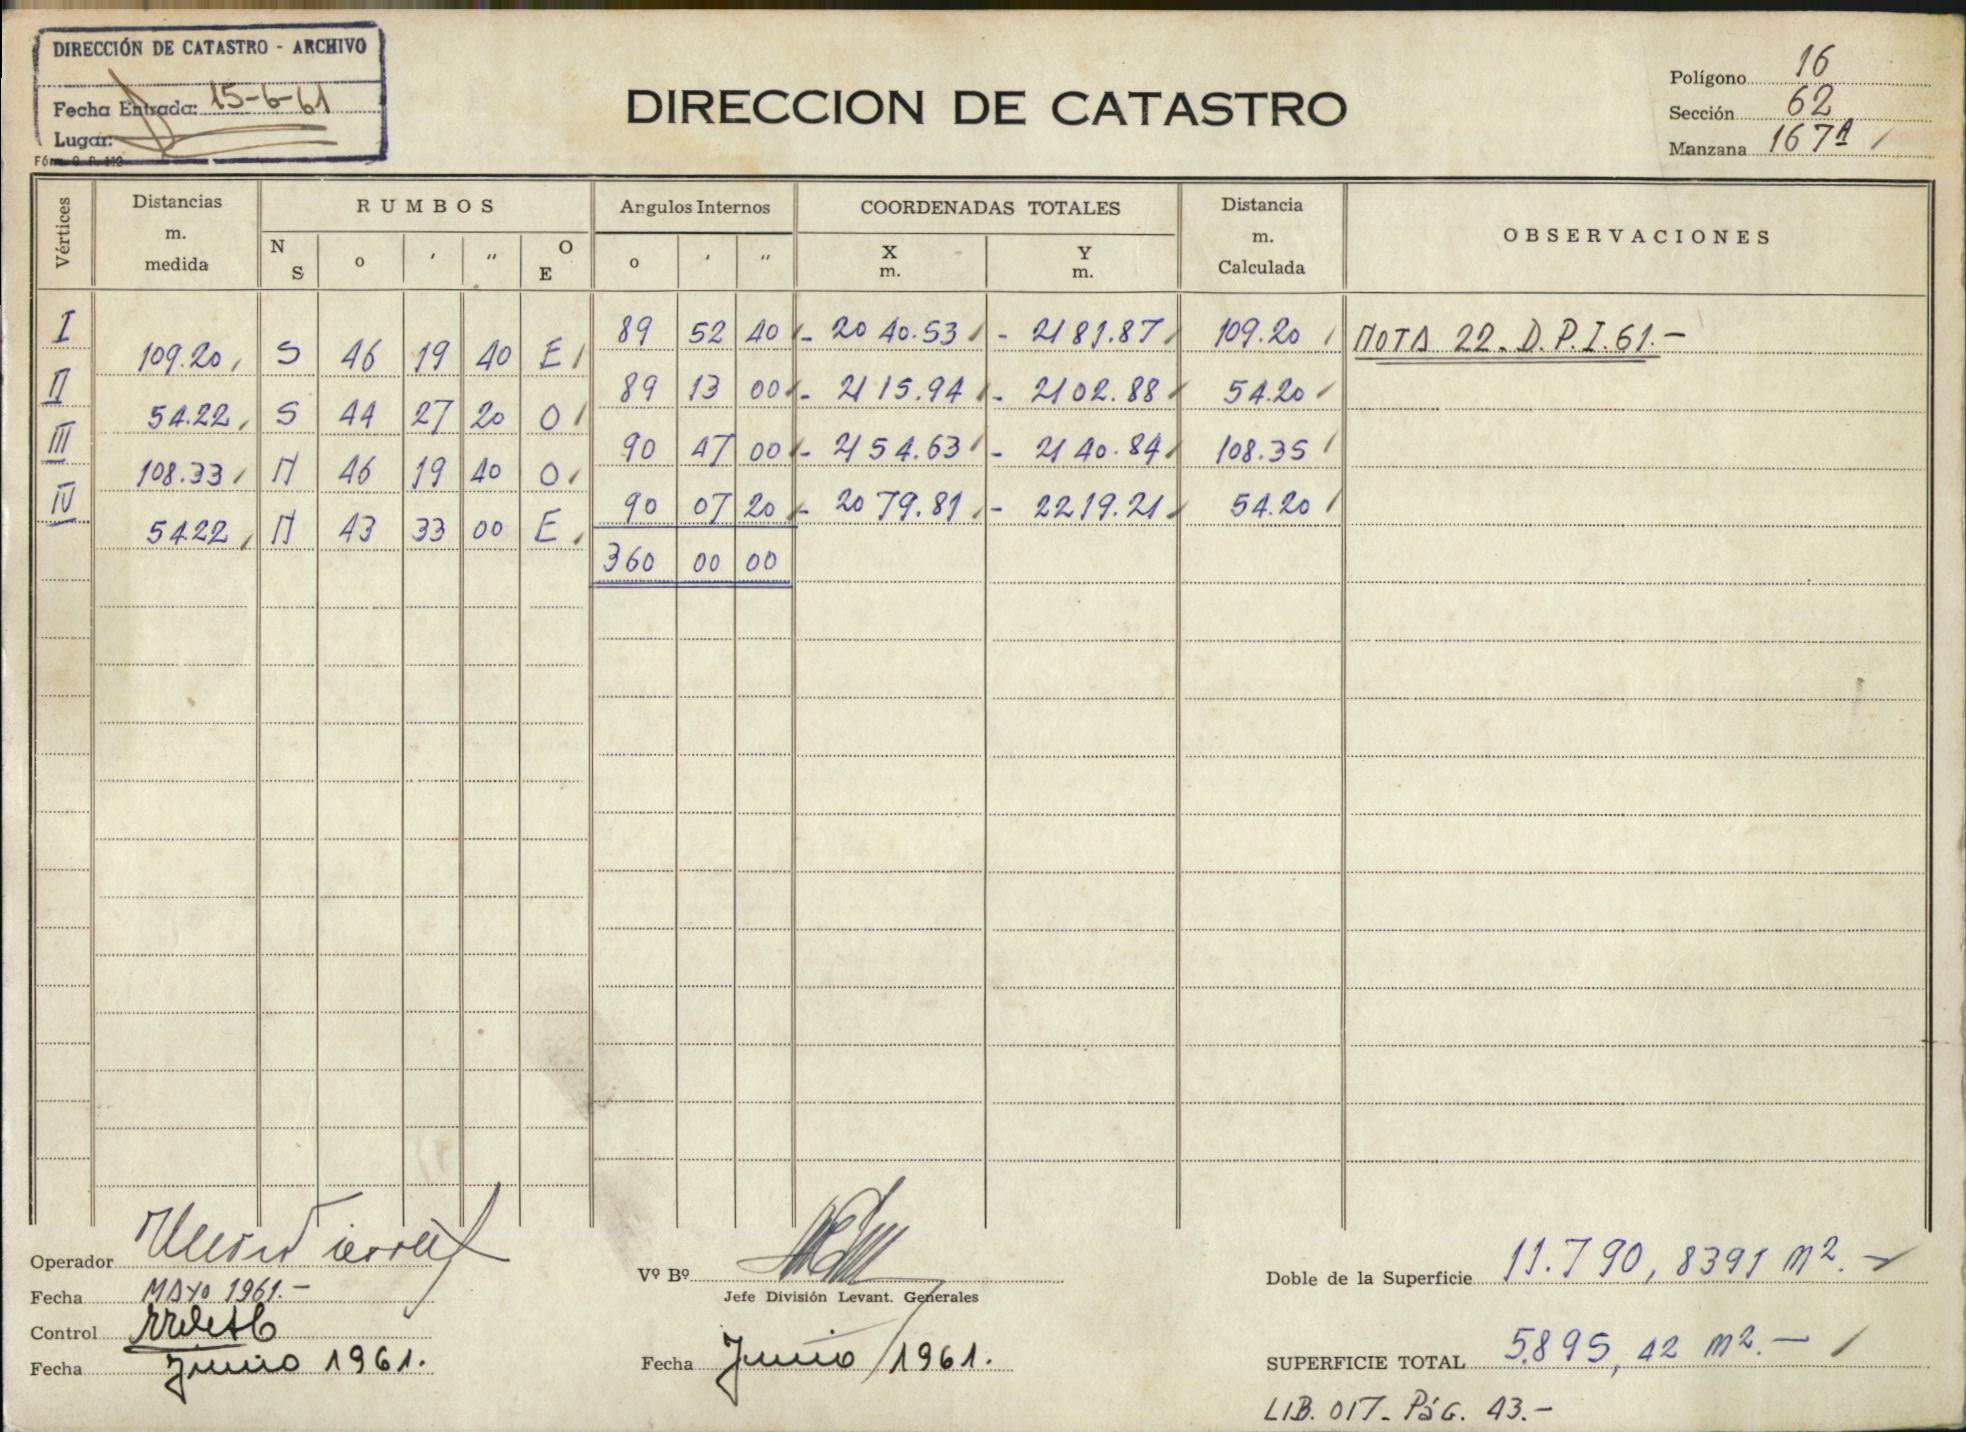 DIRECCIÓN DE CATASTRO - ARCHIVO
Fecha Entrada: 15-6-61
Lugar:
DIRECCION DE CATASTRO
Polígono 16
Sección 62
Manzana 167A
Vértices Distancias m. medida RUMBOS Angulos Internos COORDENADAS TOTALES Distancia m. Calculada OBSERVACIONES
N S o ' " O E o ' " X m. Y m.
I 89 52 40 - 2040.53 - 2181.87 109.20 NOTA 22. D.P.I.61.-
109.20 S 46 19 40 E
II 89 13 00 - 2115.94 - 2102.88 54.20
54.22 S 44 27 20 O
III 90 47 00 - 2154.63 - 2140.84 108.35
108.33 N 46 19 40 O
IV 90 07 20 - 2079.81 - 2219.21 54.20
54.22 N 43 33 00 E
360 00 00
Operador
Fecha MAYO 1961.-
Control
Fecha Junio 1961.
Vº Bº
Jefe División Levant. Generales
Fecha Junio 1961.
Doble de la Superficie 11.790,8391 m2.-
SUPERFICIE TOTAL 5.895,42 m2.-
LIB. 017- PáG. 43.-